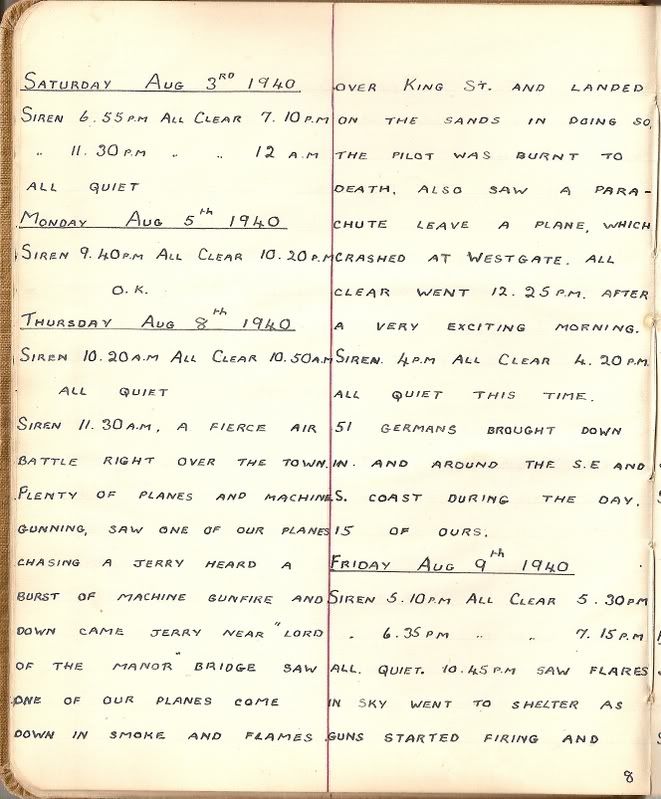 SATURDAY AUG 3RD 1940
SIREN 6.55PM ALL CLEAR 7.10PM
" 11.30PM " " 12 A.M
ALL QUIET
MONDAY AUG 5th 1940
SIREN 9.40PM ALL CLEAR 10.20P.M
O.K.
THURSDAY AUG 8th 1940
SIREN 10.20A.M ALL CLEAR 10.50A.M
ALL QUIET
SIREN 11.30A.M, A FIERCE AIR
BATTLE RIGHT OVER THE TOWN.
PLENTY OF PLANES AND MACHINE
GUNNING, SAW ONE OF OUR PLANES
CHASING A JERRY HEARD A
BURST OF MACHINE GUNFIRE AND
DOWN CAME JERRY NEAR "LORD
OF THE MANOR" BRIDGE SAW
ONE OF OUR PLANES COME
DOWN IN SMOKE AND FLAMES
OVER KING ST. AND LANDED
ON THE SANDS IN DOING SO,
THE PILOT WAS BURNT TO
DEATH. ALSO SAW A PARA-
CHUTE LEAVE A PLANE, WHICH
CRASHED AT WESTGATE. ALL
CLEAR WENT 12.25P.M. AFTER
A VERY EXCITING MORNING.
SIREN. 4P.M ALL CLEAR 4.20P.M.
ALL QUIET THIS TIME.
51 GERMANS BROUGHT DOWN
IN. AND AROUND THE S.E AND
S. COAST DURING THE DAY.
15 OF OURS.
FRIDAY AUG 9th 1940
SIREN 5.10P.M ALL CLEAR 5.30PM
" 6.35PM " " 7.15P.M
ALL. QUIET. 10.45P.M SAW FLARES
IN SKY WENT TO SHELTER AS
GUNS STARTED FIRING AND
8